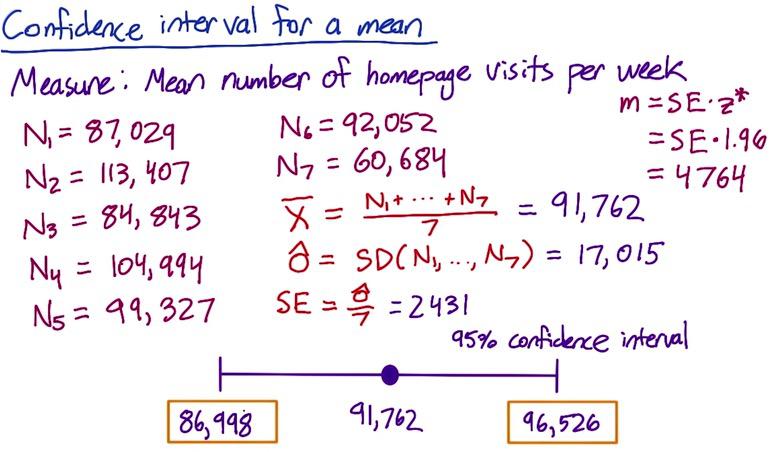 Confidence interval for a mean
Measure: Mean number of homepage visits per week
N₁ = 87,029
N₂ = 113,407
N₃ = 84,843
N₄ = 104,994
N₅ = 99,327
N₆ = 92,052
N₇ = 60,684
X̄ = (N₁ + ... + N₇)/7 = 91,762
σ̂ = SD(N₁, ..., N₇) = 17,015
SE = σ̂/7 = 2431
m = SE · z*
= SE · 1.96
= 4764
95% confidence interval
86,998 91,762 96,526